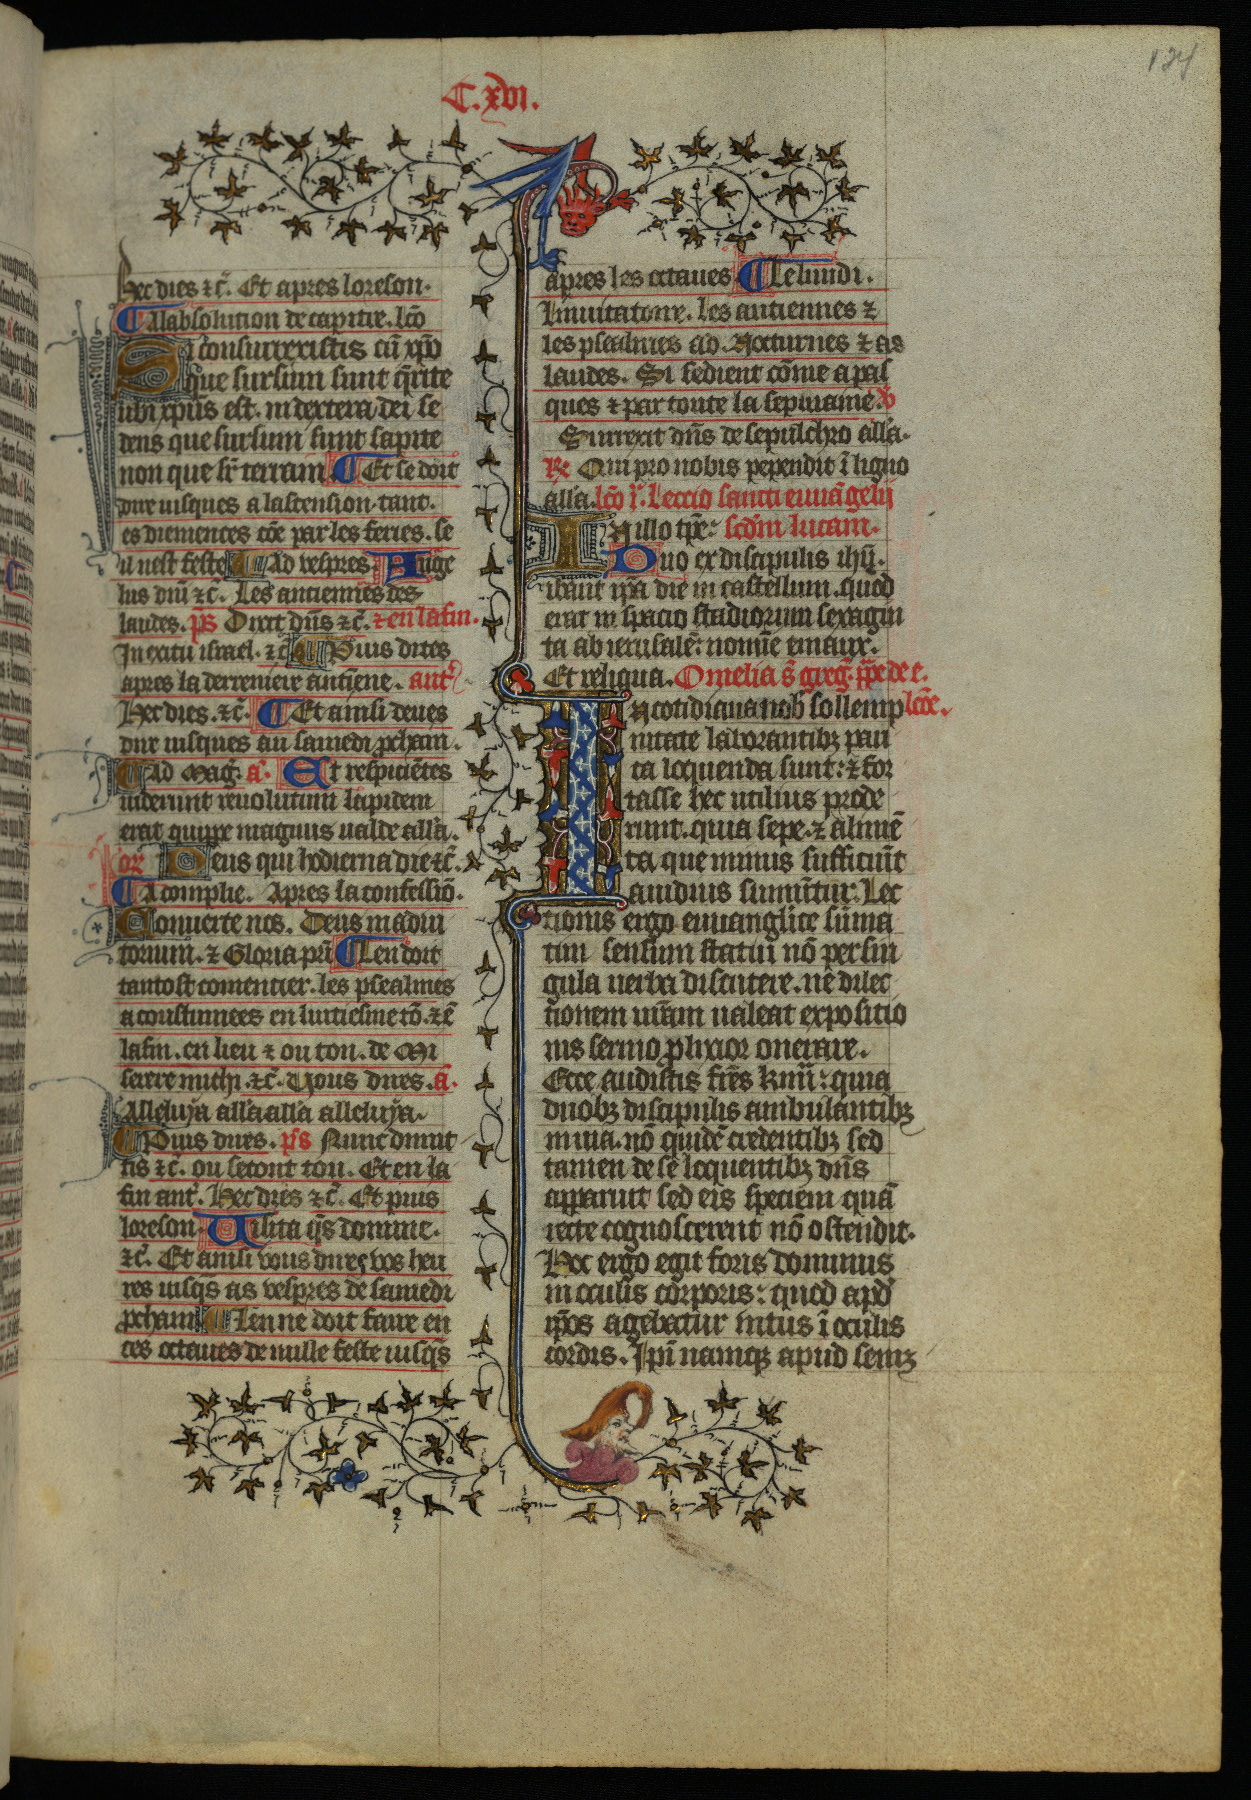 124
C. xvi.
hec dies ⁊c̃. Et apres loreson.
A labsolution de capitre. lc̃o
Si consurrexistis cũ xp̃o
que sursum sunt q̃rite
ubi xp̃us est. in dextera dei se
dens que sursum sunt sapite
non que sr̃ terram Et se doit
dire iusques a lascension. tant.
es diemences cõe par les feries. se
il nest feste Ad vespres. Ange
lus dñi ⁊c̃. Les antiennes des
laudes. ps̃ Dixit dñs ⁊c̃. ⁊ en la fin.
In exitu israel. ⁊c̃ Puis dites
apres la derreniere antiẽne. antᵉ
Hec dies. ⁊c̃. Et ainsi deues
dire iusques au samedi ꝓcham.
Ad mag̃. a᷒. Et respiciẽtes
viderunt revolutum lapidem
erat quippe magnus valde all'a.
or̃ Deus qui hodierna die ⁊c̃.
A complie. Apres la confessiõ.
Converte nos. Deus in adiu
torium. ⁊ Gloria pr̃i Len doit
tantost comencier. les psealmes
acoustumees en luitiesme tõ. ⁊ ẽ
la fin. en lieu ⁊ ou ton. de Mi
serere michi. ⁊c̃. Vous dires. a᷒.
Alleluya all'a all'a alleluya.
Puis dires. ps̃ Nunc dimit
tis ⁊c̃. ou secont ton. Et en la
fin ant̃. Hec dies ⁊c̃. Et puis
loreson. Visita q̃s domine.
⁊c̃. Et ainsi vous dires vos heu
res iusq̃s as vespres de samedi
ꝓcham Len ne doit faire en
ces octaves de nulle feste iusq̃s
apres les octaues Le lundi.
Inuitatoire. Les antiennes ⁊
les psealmes ad. Nocturnes ⁊ as
laudes. Si se dient cõme a pas
ques ⁊ par toute la sepmaine. v̾
Surrexit dñs de sepulchro all'a.
R̃ Qui pro nobis pependit ĩ ligno
all'a. lc̃o .i. Leccio sancti euuãgelij
In illo tp̃e: scd̃m lucam.
Duo ex discipulis ihũ.
ibant ip̃a die in castellum. quod
erat in spacio stadiorum sexagin
ta ab ierusalẽ: nomĩe emaux.
Et reliqua. Omelia s̃ greg̃. pp̃e de e.
In cotidiana nob' sollemp lc̃oe.
nitate laborantibꝫ pau
ca loquenda sunt: ⁊ for
tasse hec utilius prode
runt. quia sepe. ⁊ alimẽ
ta que minus sufficiũt
auidius sumũtur. Lec
tionis ergo euuanglĩce sũma
tim sensum statui nõ per sin
gula uerba discutere. nẽ dilec
tionem ur̃am ualeat expositio
nis sermo ꝓlixior onerare.
Ecce audistis fr̃es kmĩ: quia
duobꝫ discipulis ambulantibꝫ
in uia. nõ quidẽ credentibꝫ sed
tamen de se loquentibꝫ dñs
apparuit sed eis speciem quã
recte cognoscerent nõ ostendit.
Hoc ergo egit foris dominus
in oculis corporis: quod apd̾
ip̃os agebatur intus ĩ oculis
cordis. Ip̃i namqꝫ apud semꝫ